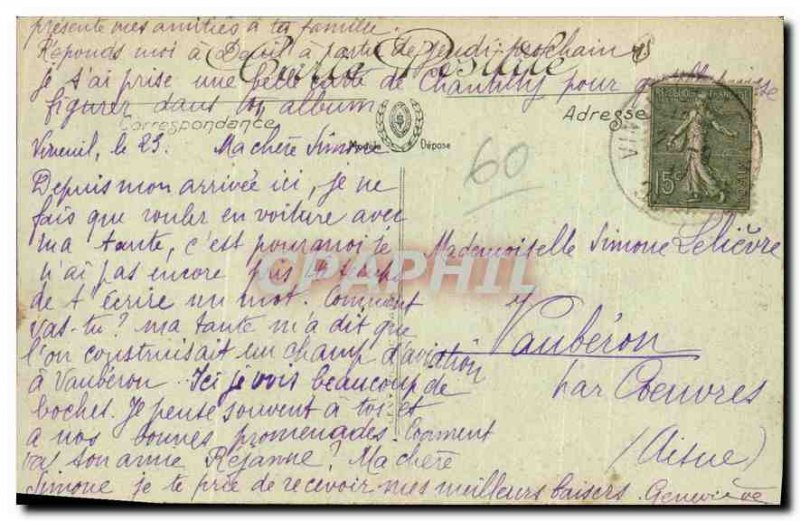 présente mes amitiés à ta famille.
Réponds moi à à partir de jeudi prochain
Carte Postale
je t'ai prise une belle carte de Chantilly pour
figurer dans ton album
Correspondance
Adresse
Vineuil, le 25. Ma chère Simone
Modèle Déposé
60
REPUBLIQUE FRANÇAISE
15c
VIN
Depuis mon arrivée ici, je ne
fais que rouler en voiture avec
ma tante, c'est pourquoi je
n'ai pas encore pris le temps
de t'écrire un mot. Comment
vas-tu? ma tante m'a dit que
l'on construisait un champ d'aviation
à Vauberon. Ici je vois beaucoup de
boches. Je pense souvent à toi et
à nos bonnes promenades. Comment
va ton amie Réjanne? Ma chère
Simone je te prie de recevoir mes meilleurs baisers. Geneviève
Mademoiselle Simone Lelièvre
Vaubéron
par Coeuvres
(Aisne)
CPAPHIL